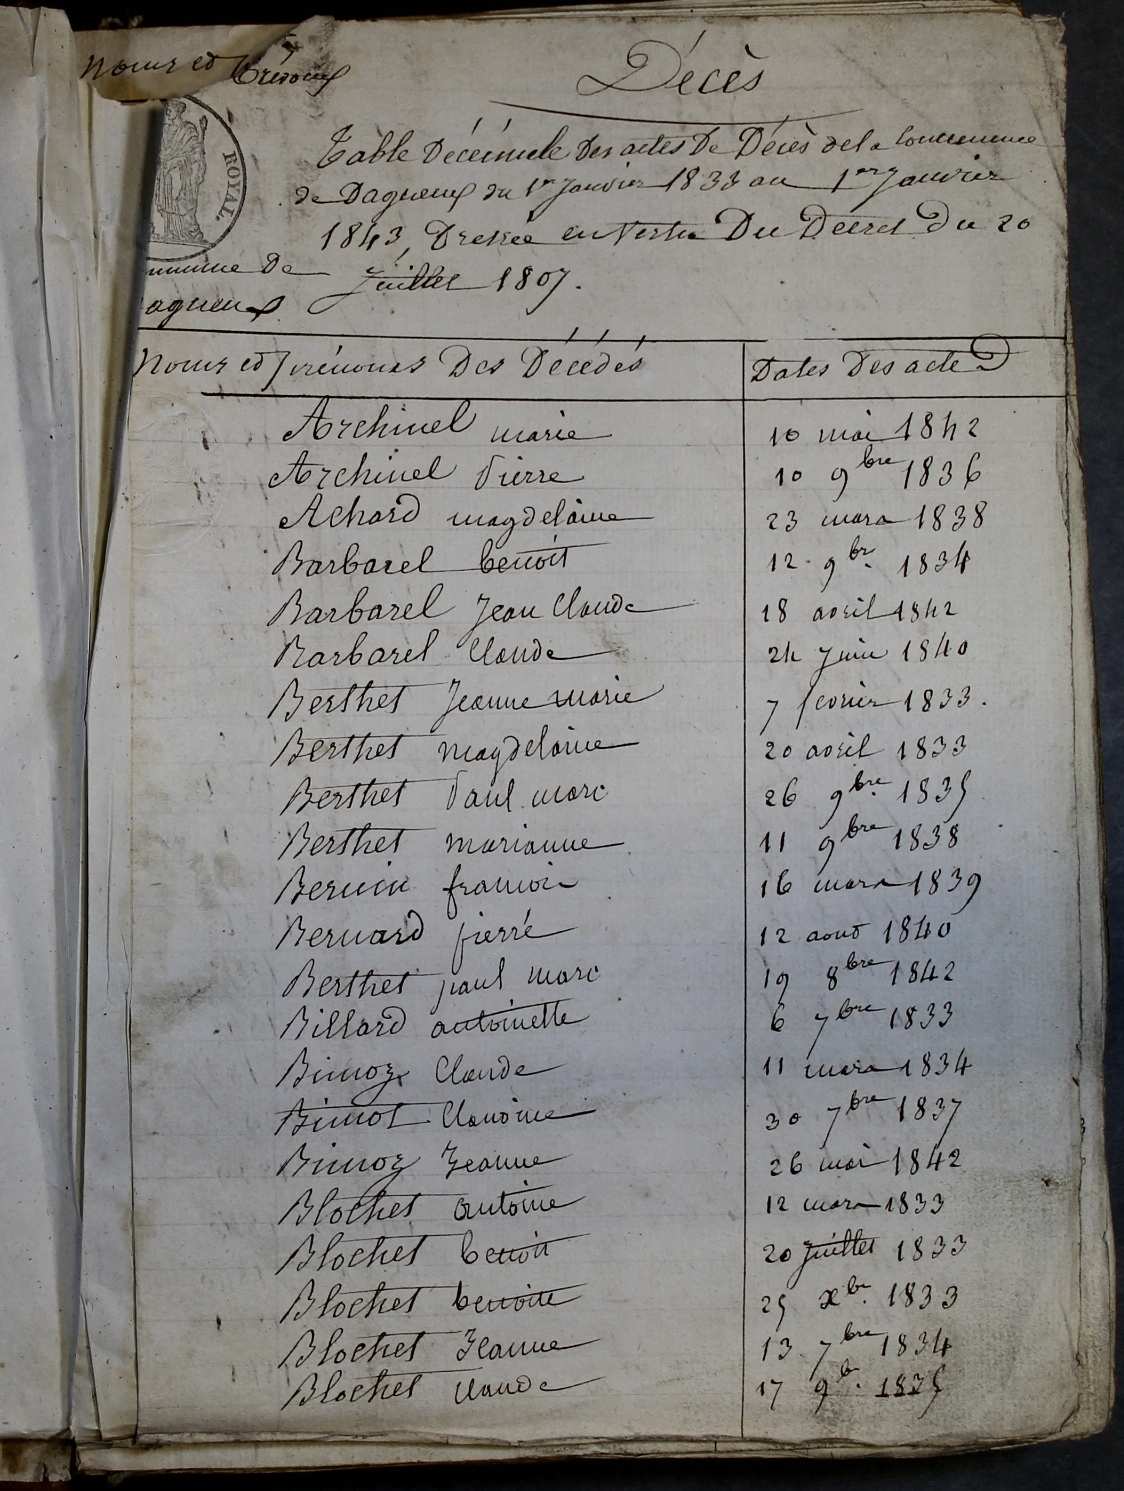 Noms et
Trévoux
Décès
ROYAL.
Table Décennale des actes de Décès de la Commune
de Dagneux du 1er Janvier 1833 au 1er Janvier
1843, Dressée en vertu Du Décret Du 20
Juillet 1807.
mmune De
agneux
Noms et Prénoms Des Décédés Dates Des actes
Archinel marie 10 mai 1842
Archinel Pierre 10 9bre 1836
Achard magdelaine 23 mars 1838
Barbarel benoit 12 9br. 1834
Barbarel Jean Claude 18 avril 1842
Barbarel Claude 24 Juin 1840
Berthet Jeanne marie 7 fevrier 1833.
Berthet magdelaine 20 avril 1833
Berthet Paul marc 26 9bre 1835
Berthet marianne 11 9bre 1838
Bernin francois 16 mars 1839
Bernard pierre 12 aout 1840
Berthet paul marc 19 8bre 1842
Billard antoinette 6 7bre 1833
Bimoz Claude 11 mars 1834
Bimot Claudine 30 7bre 1837
Bimoz Jeanne 26 mai 1842
Blochet antoine 12 mars 1833
Blochet benoit 20 Juillet 1833
Blochet benoite 25 xbr. 1833
Blochet Jeanne 13 7bre 1834
Blochet claude 17 9br. 1835